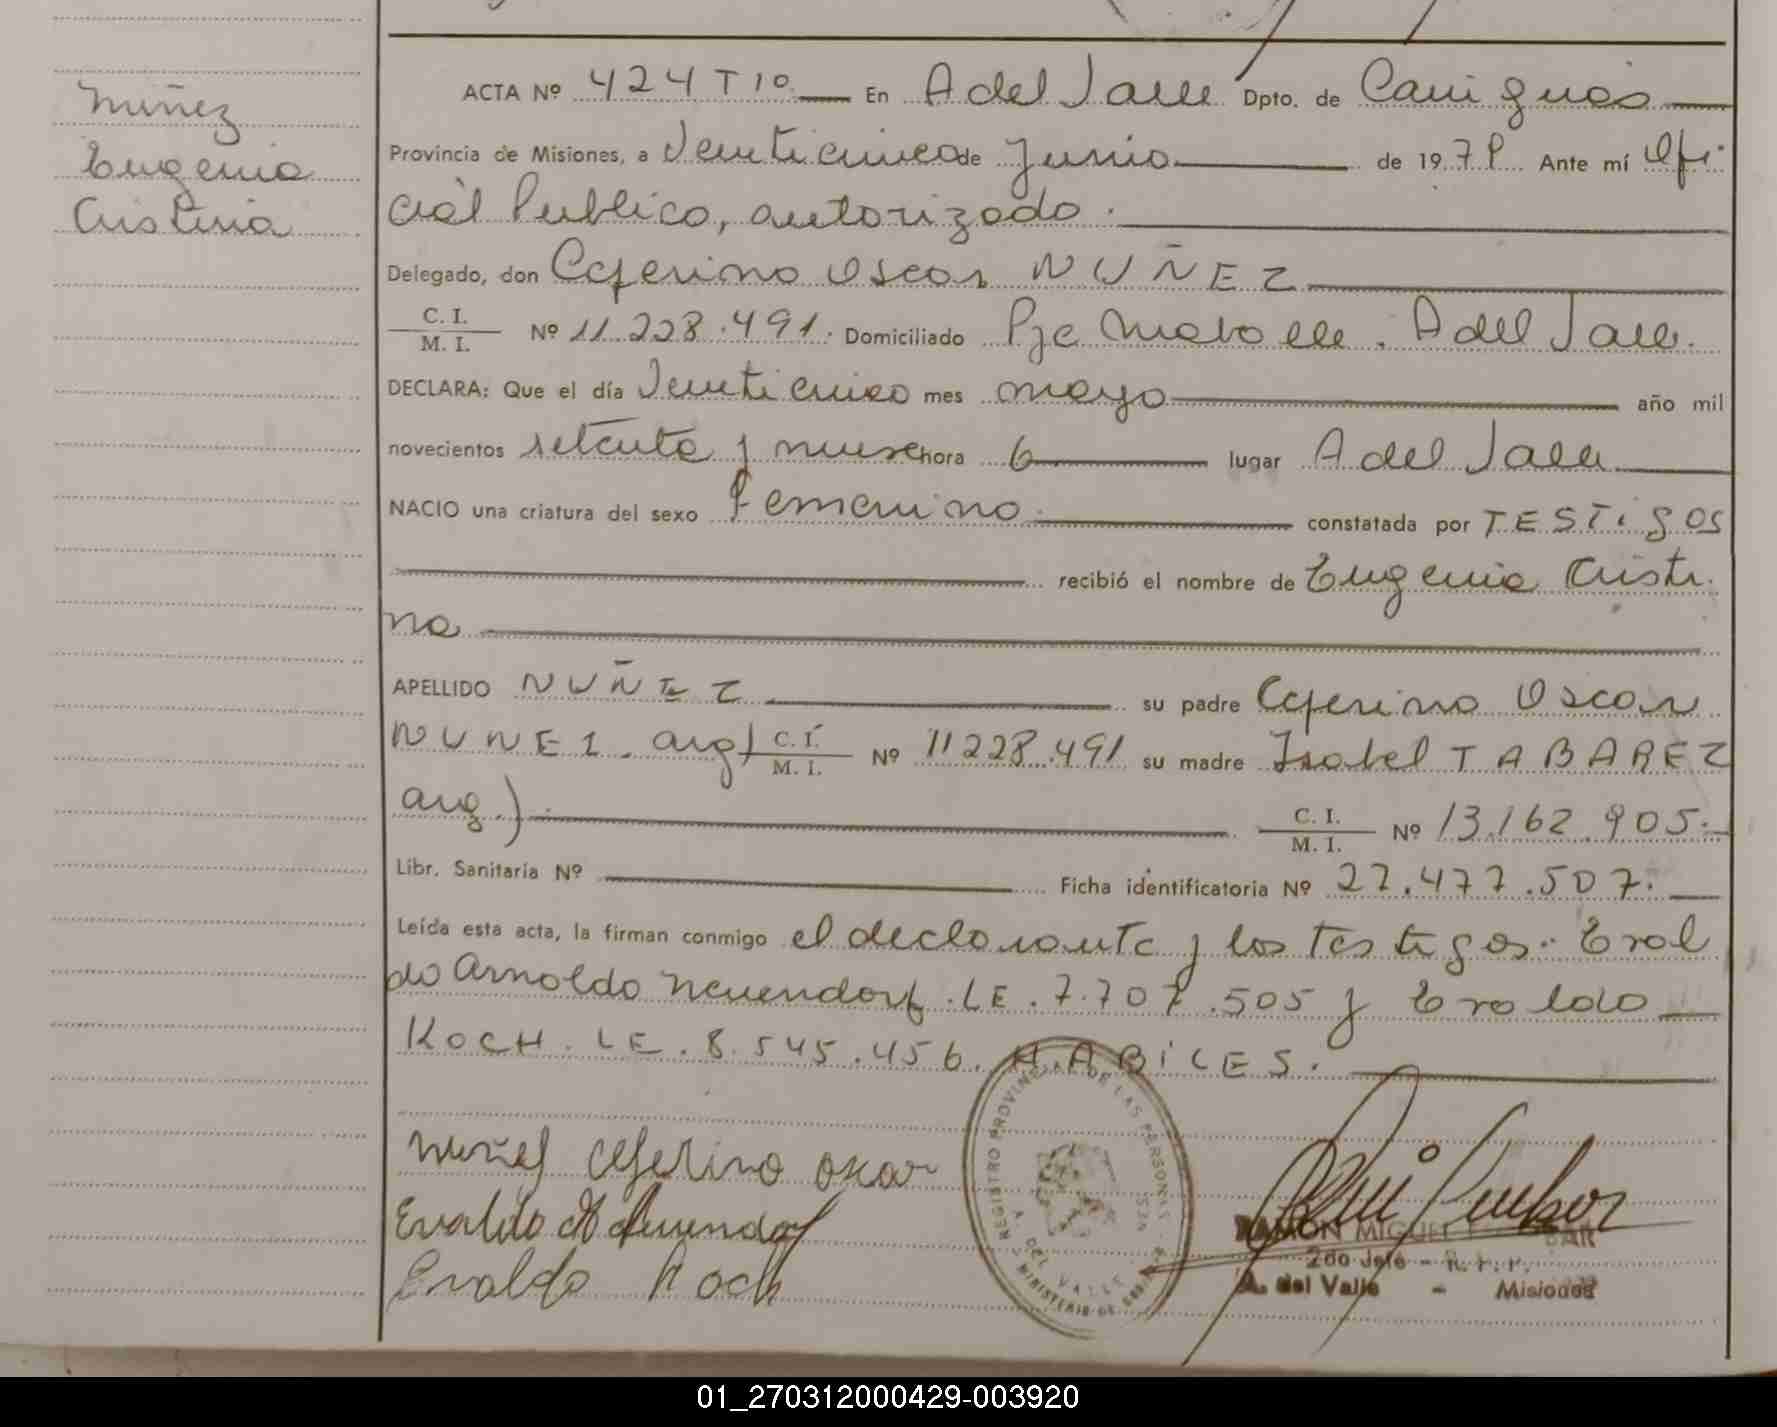 Nuñez
Eugenia
Cristina
ACTA Nº 424 Tº 1º En A del Valle Dpto. de Cainguás
Provincia de Misiones, a Veinticinco de Junio de 1979 Ante mí Ofi-
cial Publico, autorizado.
Delegado, don Ceferino Oscar NUÑEZ
C. I. / M. I. Nº 11.228.491. Domiciliado Pje A del Valle.
DECLARA: Que el día Veinticinco mes mayo año mil
novecientos setenta y nueve hora 6 lugar A del Valle
NACIO una criatura del sexo Femenino. constatada por TESTigos
recibió el nombre de Eugenia Cristi-
na
APELLIDO NUÑEZ su padre Ceferino Oscar
NUNEZ. arg) C. I. / M. I. Nº 11228.491 su madre Isabel TABAREZ
arg.). C. I. / M. I. Nº 13.162.905.
Libr. Sanitaria Nº Ficha identificatoria Nº 27.477.507.
Leída esta acta, la firman conmigo el declarante y los testigos: Eval
do Arnoldo Neuendorf. LE. 7.707.505 y Evaldo
KOCH. LE. 8.545.456. HABiLES.
Nuñez Ceferino Oscar
Evaldo A Neuendorf
Evaldo Koch
REGISTRO PROVINCIAL DE LAS PERSONAS
A. DEL VALLE
RAMON MIGUEL
2do Jefe - R. P. P.
A. del Valle - Misiones
01_270312000429-003920